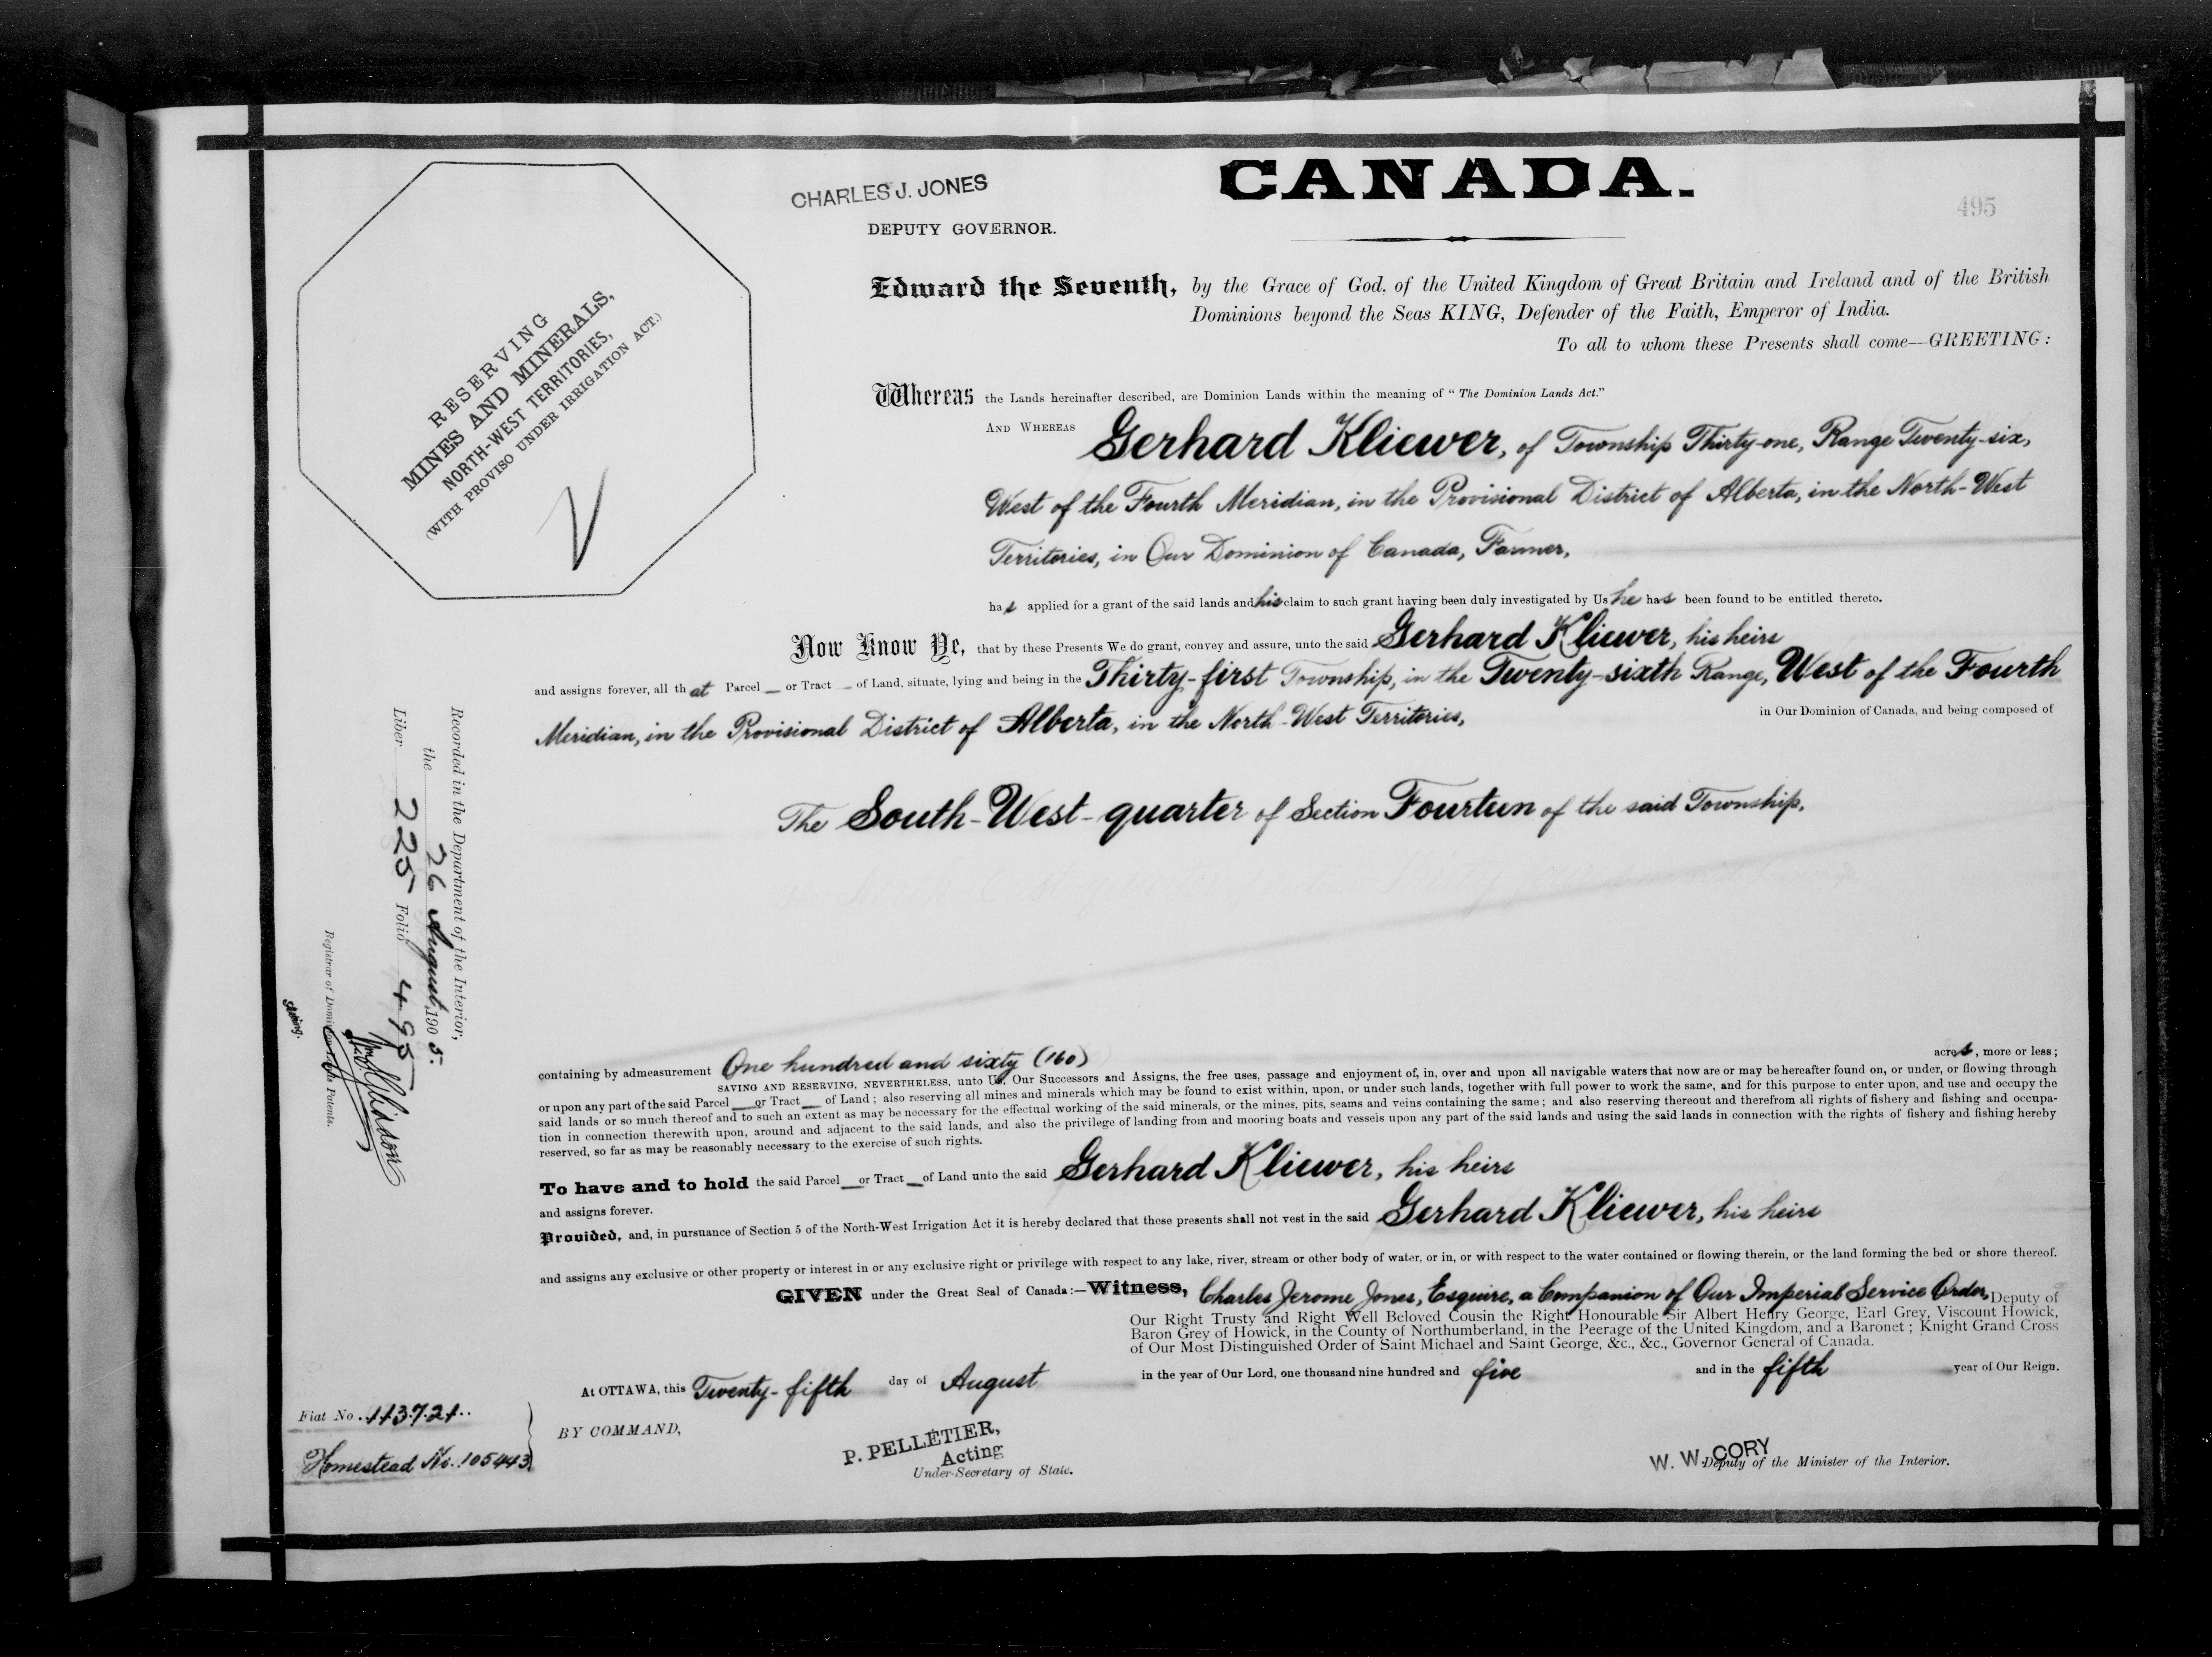 CANADA.
495
CHARLES J. JONES
DEPUTY GOVERNOR.
RESERVING
MINES AND MINERALS,
NORTH-WEST TERRITORIES,
(WITH PROVISO UNDER IRRIGATION ACT.)
Edward the Seventh, by the Grace of God, of the United Kingdom of Great Britain and Ireland and of the British
Dominions beyond the Seas KING, Defender of the Faith, Emperor of India.
To all to whom these Presents shall come—GREETING:
Whereas the Lands hereinafter described, are Dominion Lands within the meaning of "The Dominion Lands Act."
AND WHEREAS Gerhard Kliewer, of Township Thirty-one, Range Twenty-six,
West of the Fourth Meridian, in the Provisional District of Alberta, in the North-West
Territories, in Our Dominion of Canada, Farmer,
has applied for a grant of the said lands and his claim to such grant having been duly investigated by Us he has been found to be entitled thereto.
Now Know Ye, that by these Presents We do grant, convey and assure, unto the said Gerhard Kliewer, his heirs
and assigns forever, all that Parcel — or Tract — of Land, situate, lying and being in the Thirty-first Township, in the Twenty-sixth Range, West of the Fourth
Meridian, in the Provisional District of Alberta, in the North-West Territories, in Our Dominion of Canada, and being composed of
The South-West-quarter of Section Fourteen of the said Township.
containing by admeasurement One hundred and sixty (160) acres, more or less;
SAVING AND RESERVING, NEVERTHELESS, unto Us, Our Successors and Assigns, the free uses, passage and enjoyment of, in, over and upon all navigable waters that now are or may be hereafter found on, or under, or flowing through
or upon any part of the said Parcel — or Tract — of Land; also reserving all mines and minerals which may be found to exist within, upon, or under such lands, together with full power to work the same, and for this purpose to enter upon, and use and occupy the
said lands or so much thereof and to such an extent as may be necessary for the effectual working of the said minerals, or the mines, pits, seams and veins containing the same; and also reserving thereout and therefrom all rights of fishery and fishing and occupa-
tion in connection therewith upon, around and adjacent to the said lands, and also the privilege of landing from and mooring boats and vessels upon any part of the said lands and using the said lands in connection with the rights of fishery and fishing hereby
reserved, so far as may be reasonably necessary to the exercise of such rights.
To have and to hold the said Parcel — or Tract — of Land unto the said Gerhard Kliewer, his heirs
and assigns forever.
Provided, and, in pursuance of Section 5 of the North-West Irrigation Act it is hereby declared that these presents shall not vest in the said Gerhard Kliewer, his heirs
and assigns any exclusive or other property or interest in or any exclusive right or privilege with respect to any lake, river, stream or other body of water, or in, or with respect to the water contained or flowing therein, or the land forming the bed or shore thereof.
GIVEN under the Great Seal of Canada:—Witness, Charles Jerome Jones, Esquire, a Companion of Our Imperial Service Order, Deputy of
Our Right Trusty and Right Well Beloved Cousin the Right Honourable Sir Albert Henry George, Earl Grey, Viscount Howick,
Baron Grey of Howick, in the County of Northumberland, in the Peerage of the United Kingdom, and a Baronet; Knight Grand Cross
of Our Most Distinguished Order of Saint Michael and Saint George, &c., &c., Governor General of Canada.
At OTTAWA, this Twenty-fifth day of August in the year of Our Lord, one thousand nine hundred and five and in the fifth year of Our Reign.
BY COMMAND,
P. PELLETIER,
Acting
Under-Secretary of State.
W. W. CORY
Deputy of the Minister of the Interior.
Fiat No. 113721
Homestead No. 105443
Recorded in the Department of the Interior,
the 26 August, 1905.
Liber 225 Folio 495
Registrar of Dominion Lands Patents.